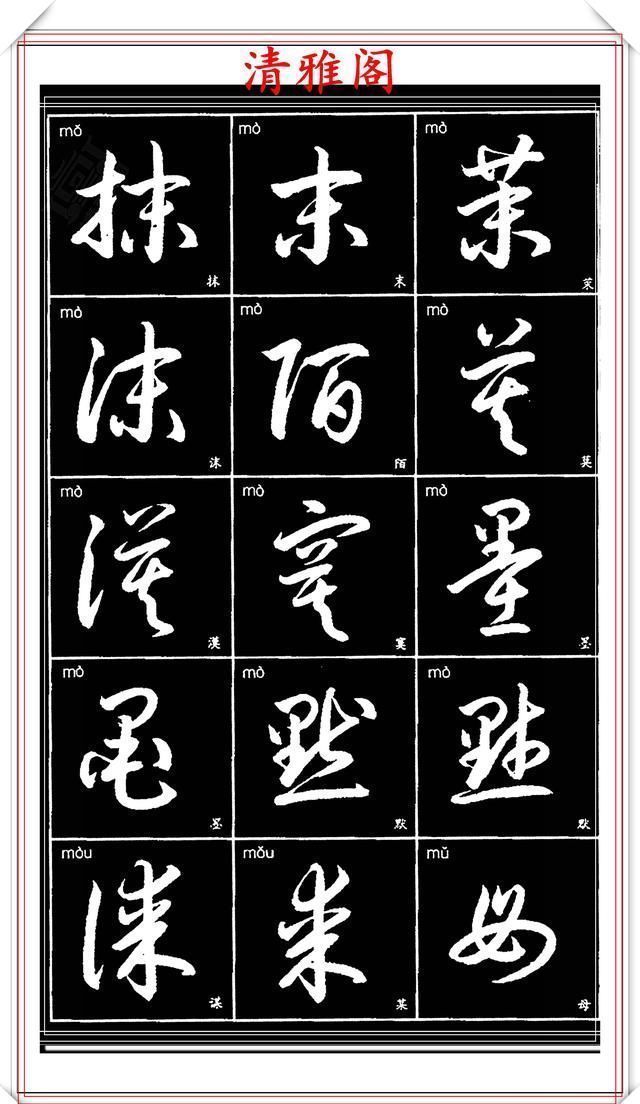 清雅阁
mǒ mò mò
抹 末 茉
抹 末 茉
mò mò mò
沫 陌 莫
沫 陌 莫
mò mò mò
漠 寞 墨
漠 寞 墨
mò mò mò
墨 默 默
墨 默 默
móu mǒu mǔ
谋 某 母
谋 某 母